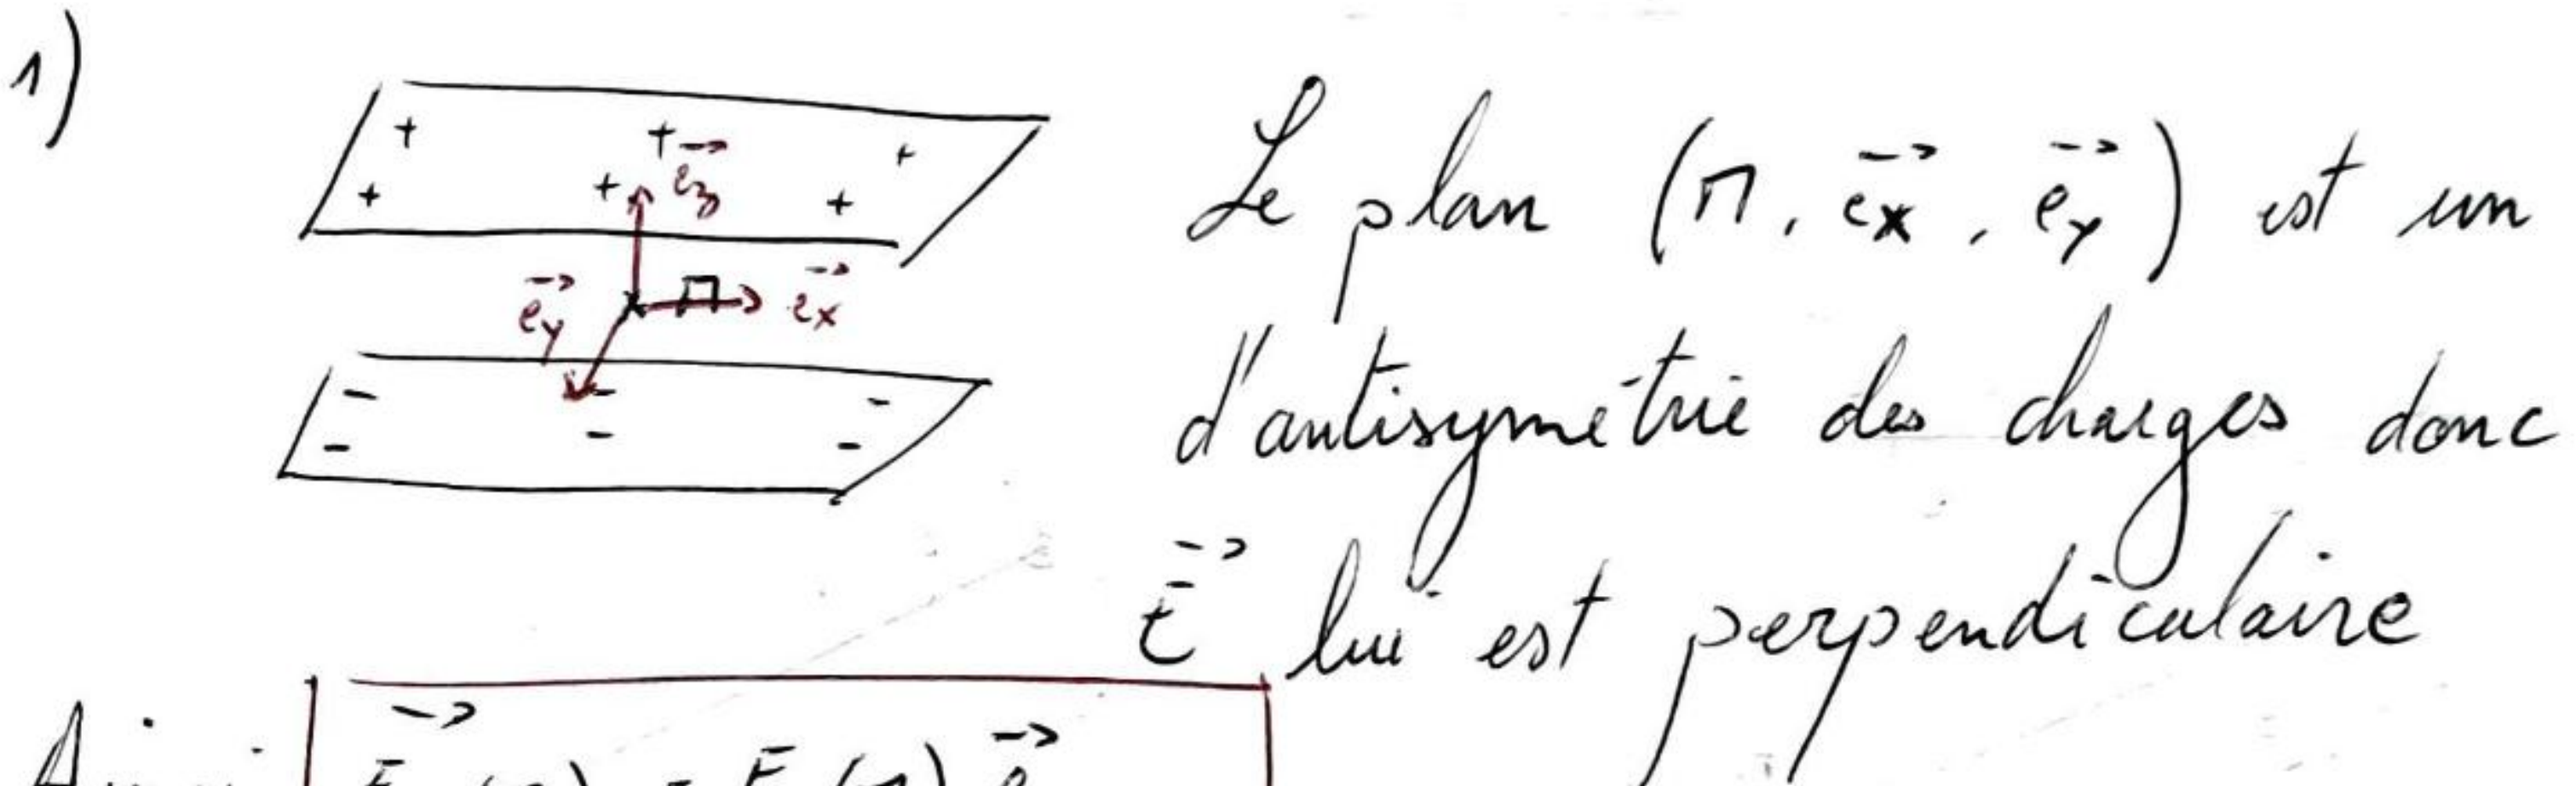 1)
+ + +
+ + +
e⃗z
e⃗y M e⃗x
- - -
- - -
Le plan (M, e⃗x, e⃗y) est un
d'antisymétrie des charges donc
E⃗ lui est perpendiculaire